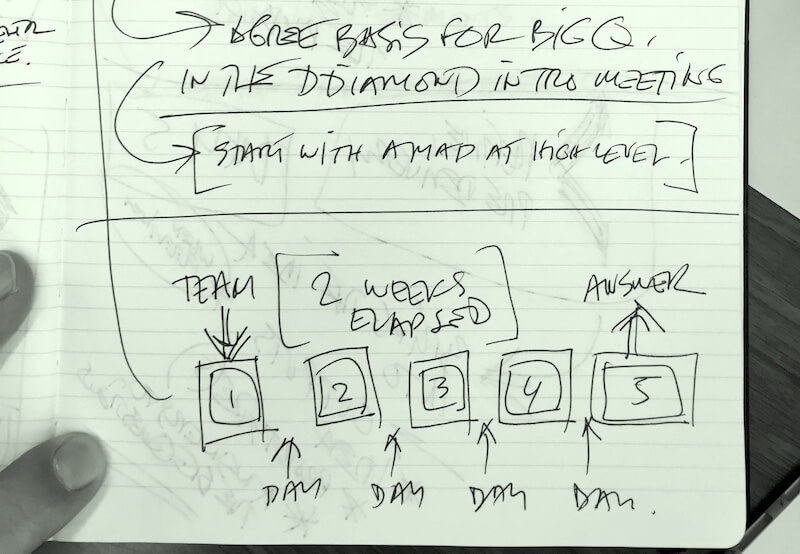 AGREE BASIS FOR BIG Q.
IN THE DDIAMOND INTRO MEETING
[START WITH A MAP AT HIGH LEVEL.]
TEAM
[2 WEEKS
ELAPSED]
ANSWER
1 2 3 4 5
DAY DAY DAY DAY.